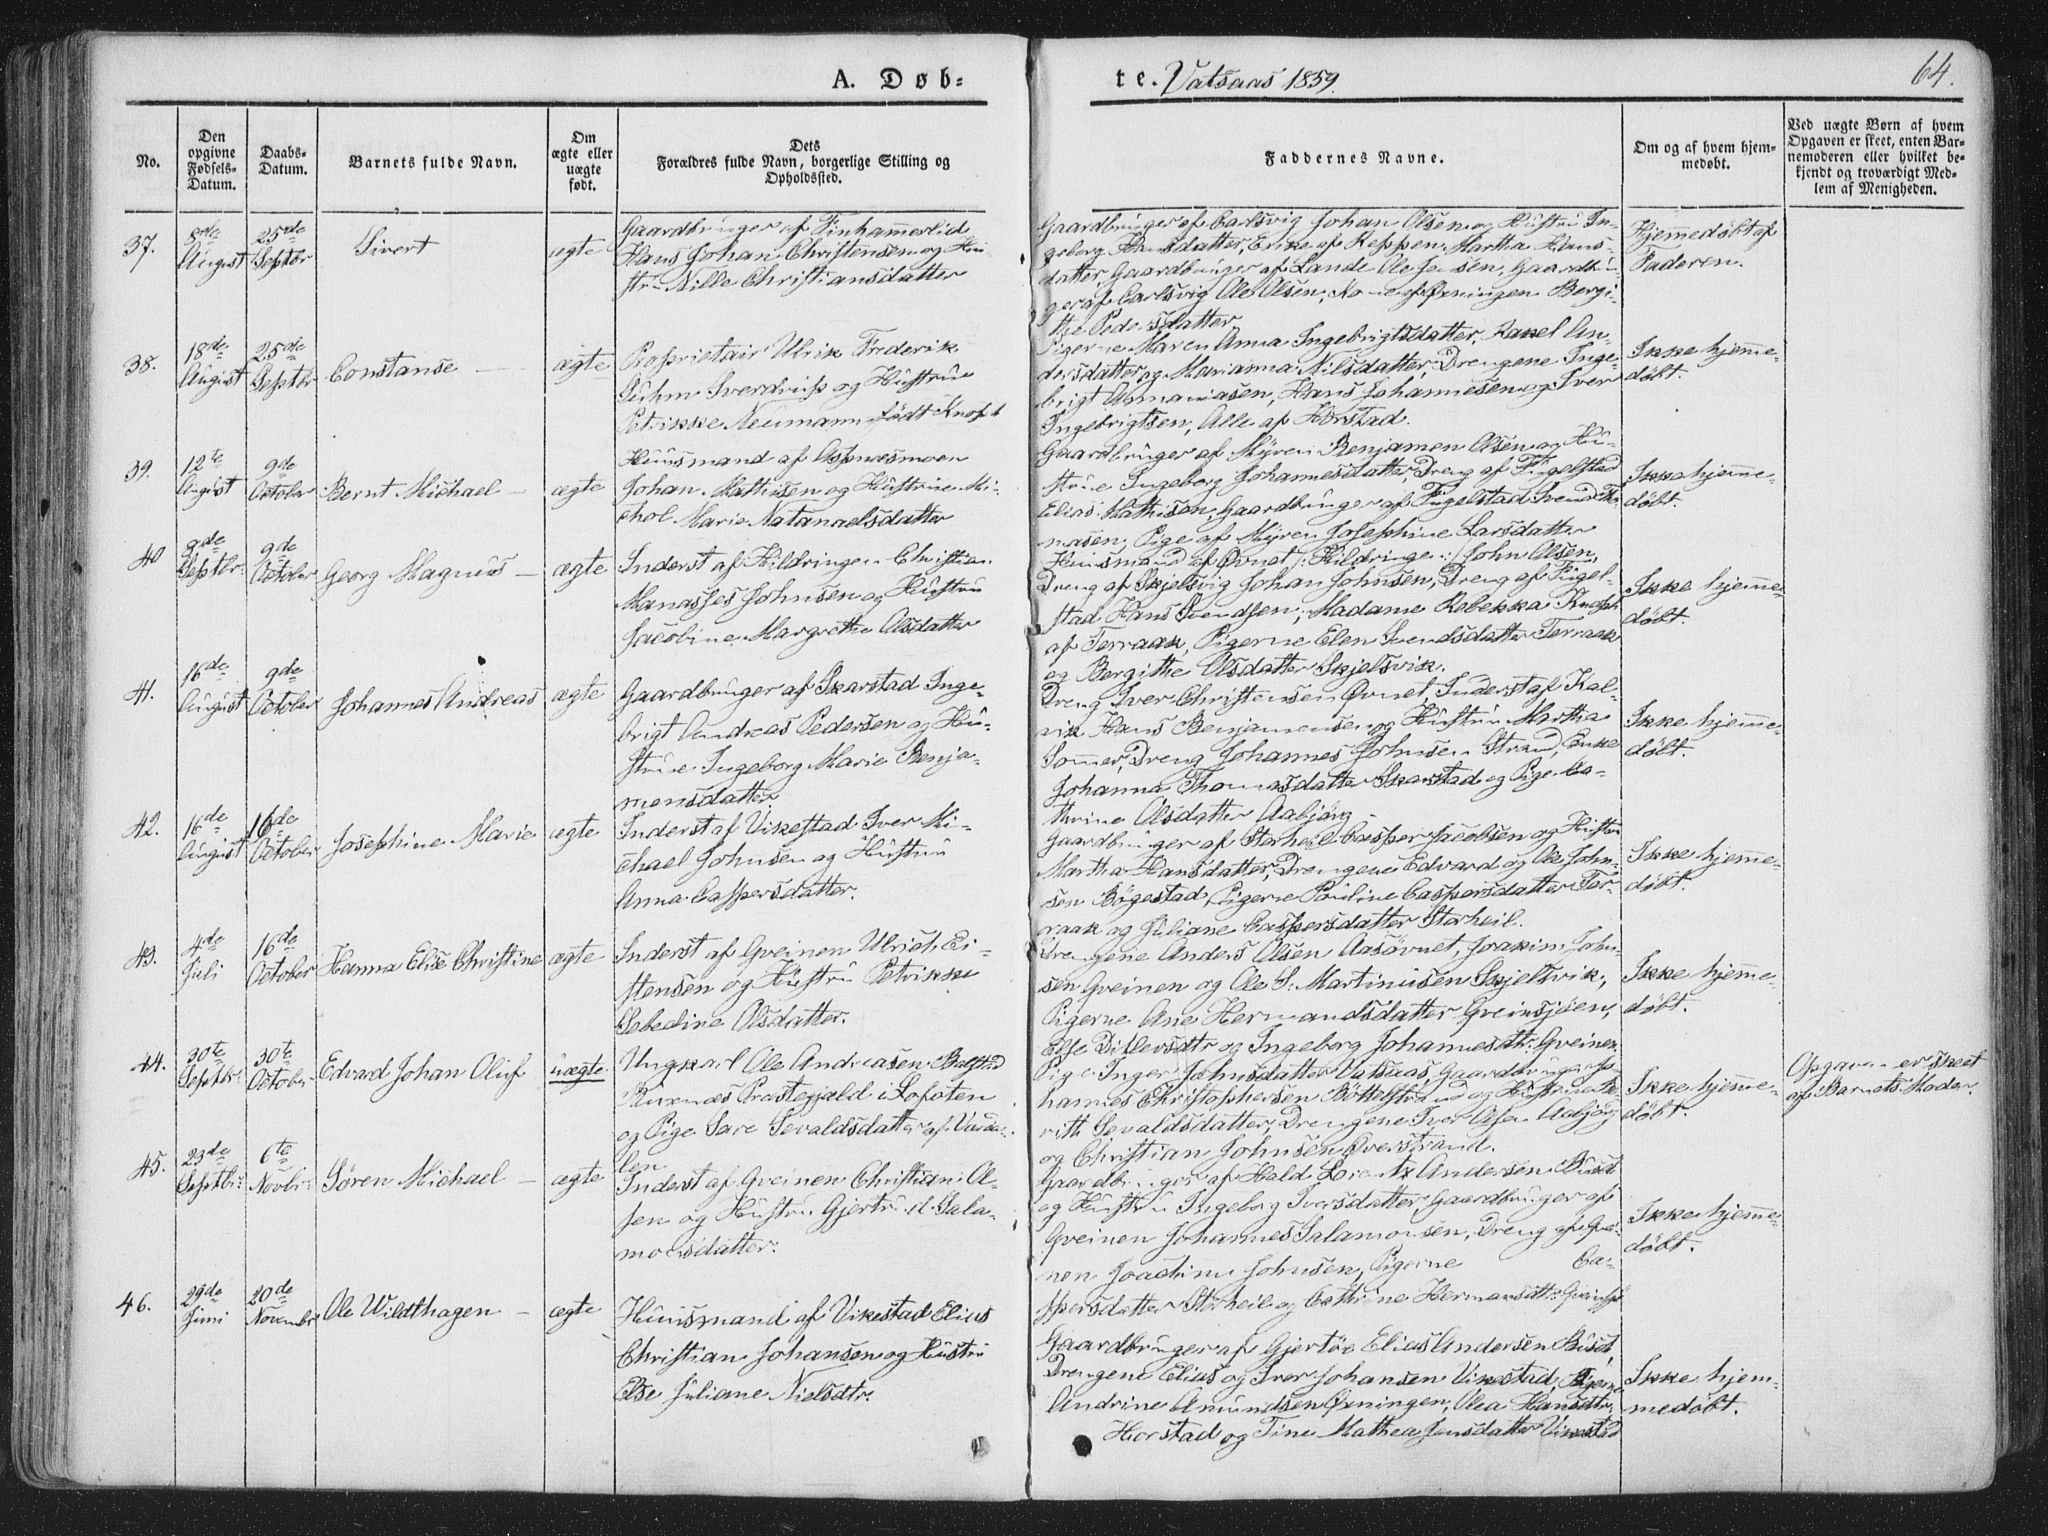 A. Døb-
te. Vatsaas 1859.
64.
No.
Den
opgivne
Fødsels-
Datum.
Daabs-
Datum.
Barnets fulde Navn.
Om
ægte eller
uægte
født.
Dets
Forældres fulde Navn, borgerlige Stilling og
Opholdssted.
Faddernes Navne.
Om og af hvem hjem-
medøbt.
Ved uægte Børn af hvem
Opgaven er skeet, enten Bar-
nemoderen eller hvilket be-
kjendt og troværdigt Med-
lem af Menigheden.
37.
8de
August
25de
Septbr
Sivert
ægte
Gaardbruger af
Hans Johan Christensen og Hu-
stru Nille Christiansdatter
Gaardbruger af Carlsvig Johan Olsen og Hustru In-
geborg Hansdatter, Enke af Reppen Martha Hans-
datter, Gaardbruger af Lande Ole Jensen, Gaardbru-
ger af Carlsvig Ole Olsen, Kone af Øxningen Bergi-
the Pedersdatter
Hjemedøbt af
Faderen.
38.
18de
August
25de
Septbr
Constanse
ægte
Proprietair Ulrik Frederik
Suhm Sverdrup og Hustrue
Petrikke Neumann födt Knoph
Pigerne Maren Anna Ingebrigtsdatter, Rakel An-
dersdatter og Marianna Nilsdatter, Drengene Inge-
brigt Asmaniasen, Hans Johannesen og Iver
Ingebrigtsen, Alle af Horstad.
Ikke hjemme-
døbt.
39.
12te
August
9de
October
Bernt Michael
ægte
Huusmand af Aspnæsmoen
Johan Mathisen og Hustrue Mi-
chol. Marie Natanaelsdatter
Gaardbruger af Myren Benjamen Olsen og Hu-
strue Ingeborg Johannesdatter, Dreng af Fugelstad
Elias Mathisen, Gaardbruger af Fugelstad Svend
masen, Pige af Myren Josephine Larsdatter
Ikke hjemme-
døbt.
40
9de
Septbr.
9de
October
Georg Magnus
ægte
Inderst af Hildringen Christian
Manasses Johnsen og Hustru
Jacobine Margrethe Olsdatter
Huusmand af Øvnet /: Hildringen :/ John Olsen,
Dreng af Skjelsvig Johan Johnsen, Dreng af Fugel-
stad Hans Svendsen, Madame Rebekka Knoph
af Terraak, Pigerne Elen Svendsdatter Terraak
og Bergithe Olsdatter Skjelsvik.
Ikke hjemme-
døbt.
41.
16de
August
9de
October
Johannes Andreas
ægte
Gaardbruger af Skarstad Inge-
brigt Andreas Pedersen og Hu-
strue Ingeborg Marie Benja-
mensdatter
Dreng Iver Christensen Øvnet, Inderst af Kal-
vik Hans Benjamensen og Hustru Martha
Sommer, Dreng Johannes Johnsen Strand, Enke
Johanna Thomasdatter Skarstad og Pige Ca-
thrine Olsdatter Aabjørg
Ikke hjemme-
døbt.
42.
16de
August
16de
October
Josephine Marie
ægte
Inderst af Vikestad Iver Mi-
chael Johnsen og Hustru
Anna Caspersdatter.
Gaardbruger af Storheil Casper Jacobsen og Hustru
Martha Hansdatter, Drengene Edvard og Ole John-
sen Bøgestad, Pigerne Pauline Caspersdatter Ter-
raak og Juliane Caspersdatter Storheil.
Ikke hjemme-
døbt.
43.
4de
Juli
16de
October
Hanna Elise Christine
ægte
Inderst af Gveinen Ulrich Ei-
stensen og Hustru Petrikke
Sebedine Olsdatter.
Drengene Anders Olsen Aasøvnet, Joakim John-
sen Gveinen og Ole S. Martinusen Skjelsvik,
Pigerne Ane Hermandsdatter Gveinsjøen,
Else Ditlevsdtr og Ingeborg Johannesdtr. Gveinen
Ikke hjemme-
døbt.
44.
30te
Septbr.
30te
October
Edvard Johan Oluf
uægte.
Ungkarl Ole Andreasen Balstad
Buxnæs Præstegjald i Lofoten
og Pige Sare Sevaldsdatter af Værda-
len
Pige Inger Johnsdatter Vatsaas, Gaardbruger Jo-
hannes Christophersen Bøttelstrand og Hustrue Be-
rith Sevaldsdatter, Drengene Iver Olsen Aabjørg
og Christian Johnsen Øverstrand.
Ikke hjemme-
døbt.
Opgaven er skeet
af Barnets Moder.
45.
23de
Septbr.
6te
Novbr.
Søren Michael
ægte
Inderst af Gveinen Christian Ol-
sen og Hustru Gjertrud Sala-
monsdatter.
Gaardbruger af Hald Lorentz Andersen Buset
og Hustru Ingeborg Iversdatter, Gaardbruger af
Gveinen Johannes Salamonsen, Dreng af Gvei-
nen Joachim Johnsen, Pigerne Ca-
spersdatter Storheil og Cathrine Hermansdtr.
Ikke hjemme-
døbt.
46.
29de
Juni
20de
Novembr
Ole Wildthagen
ægte
Huusmand af Vikestad Elias
Christian Johansen og Hustru
Else Juliane Nielsdtr.
Gaardbruger af Gjertøe Elias Andersen Buset,
Drengene Elias og Iver Johansen Vikestad, Pigerne
Andrine Amundsen Øxningen, Olea Hansdtr.
Horstad og Tine Mathea Jensdatter Vikestad
Ikke hjem-
medøbt.